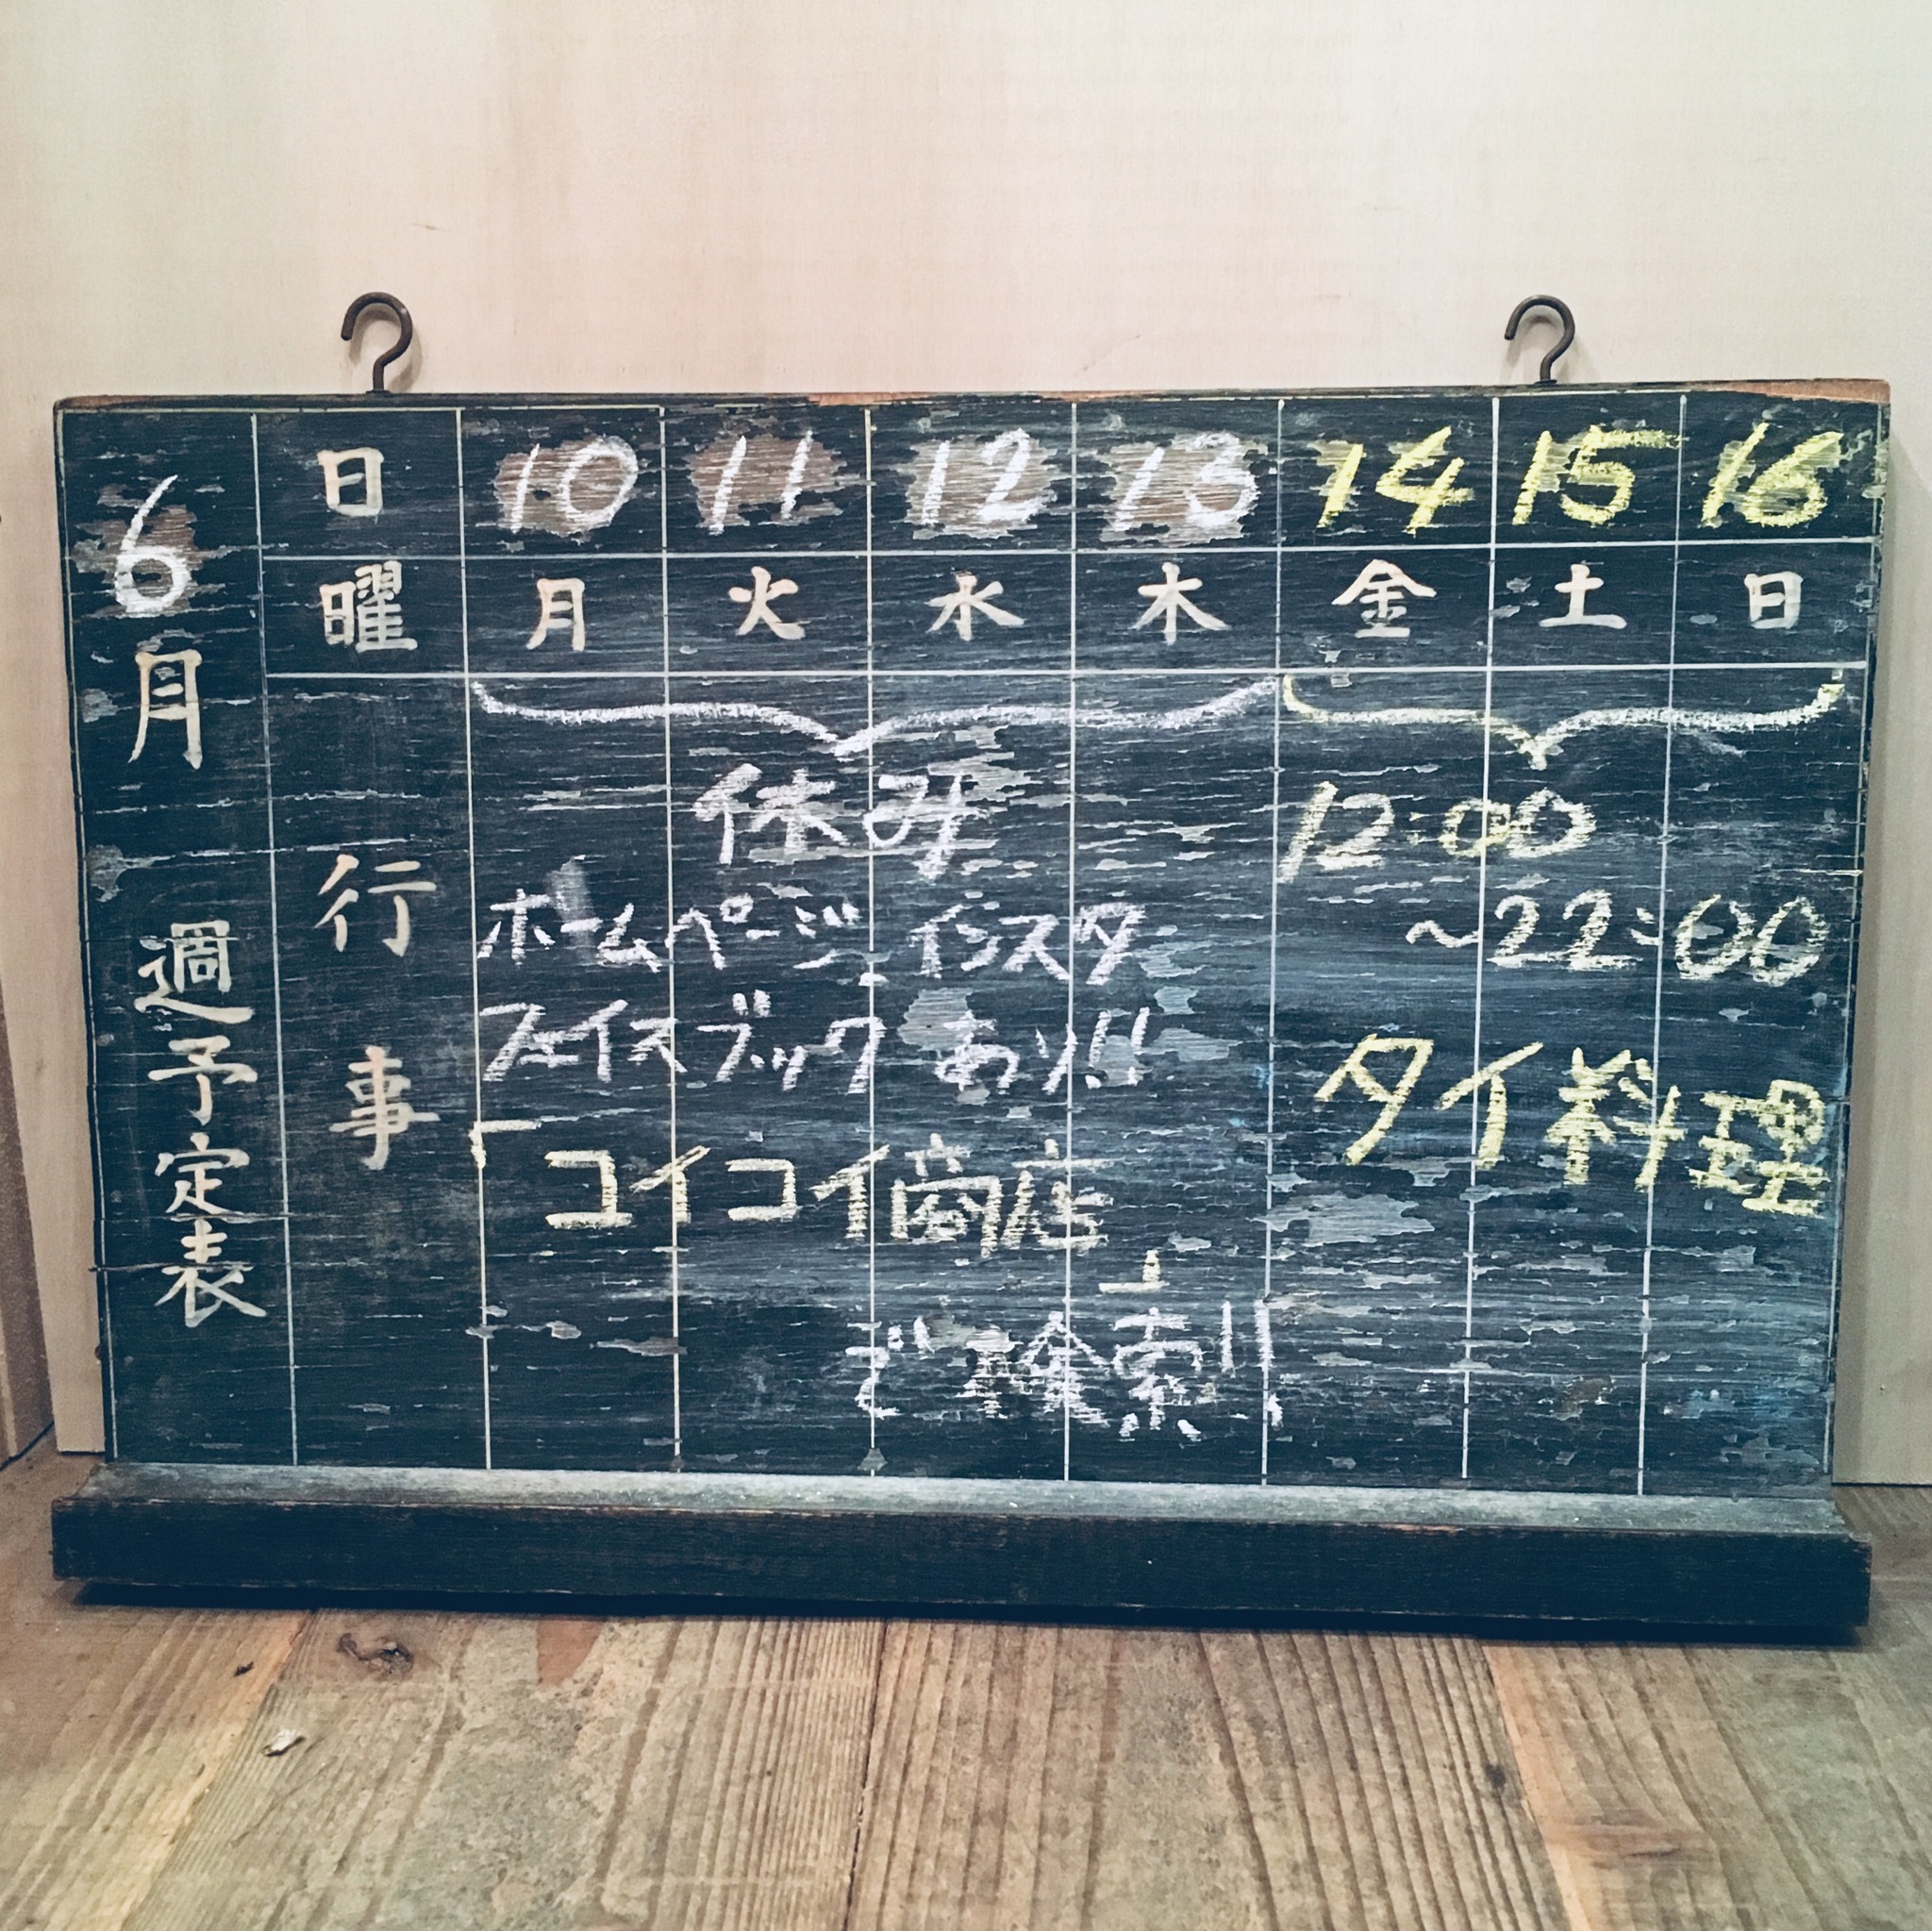 6月
週予定表
日 10 11 12 13 14 15 16
曜 月 火 水 木 金 土 日
行事
休み
ホームページ、インスタ
フェイスブックあり!!
「コイコイ商店」
で検索!!
12:00
~22:00
タイ料理